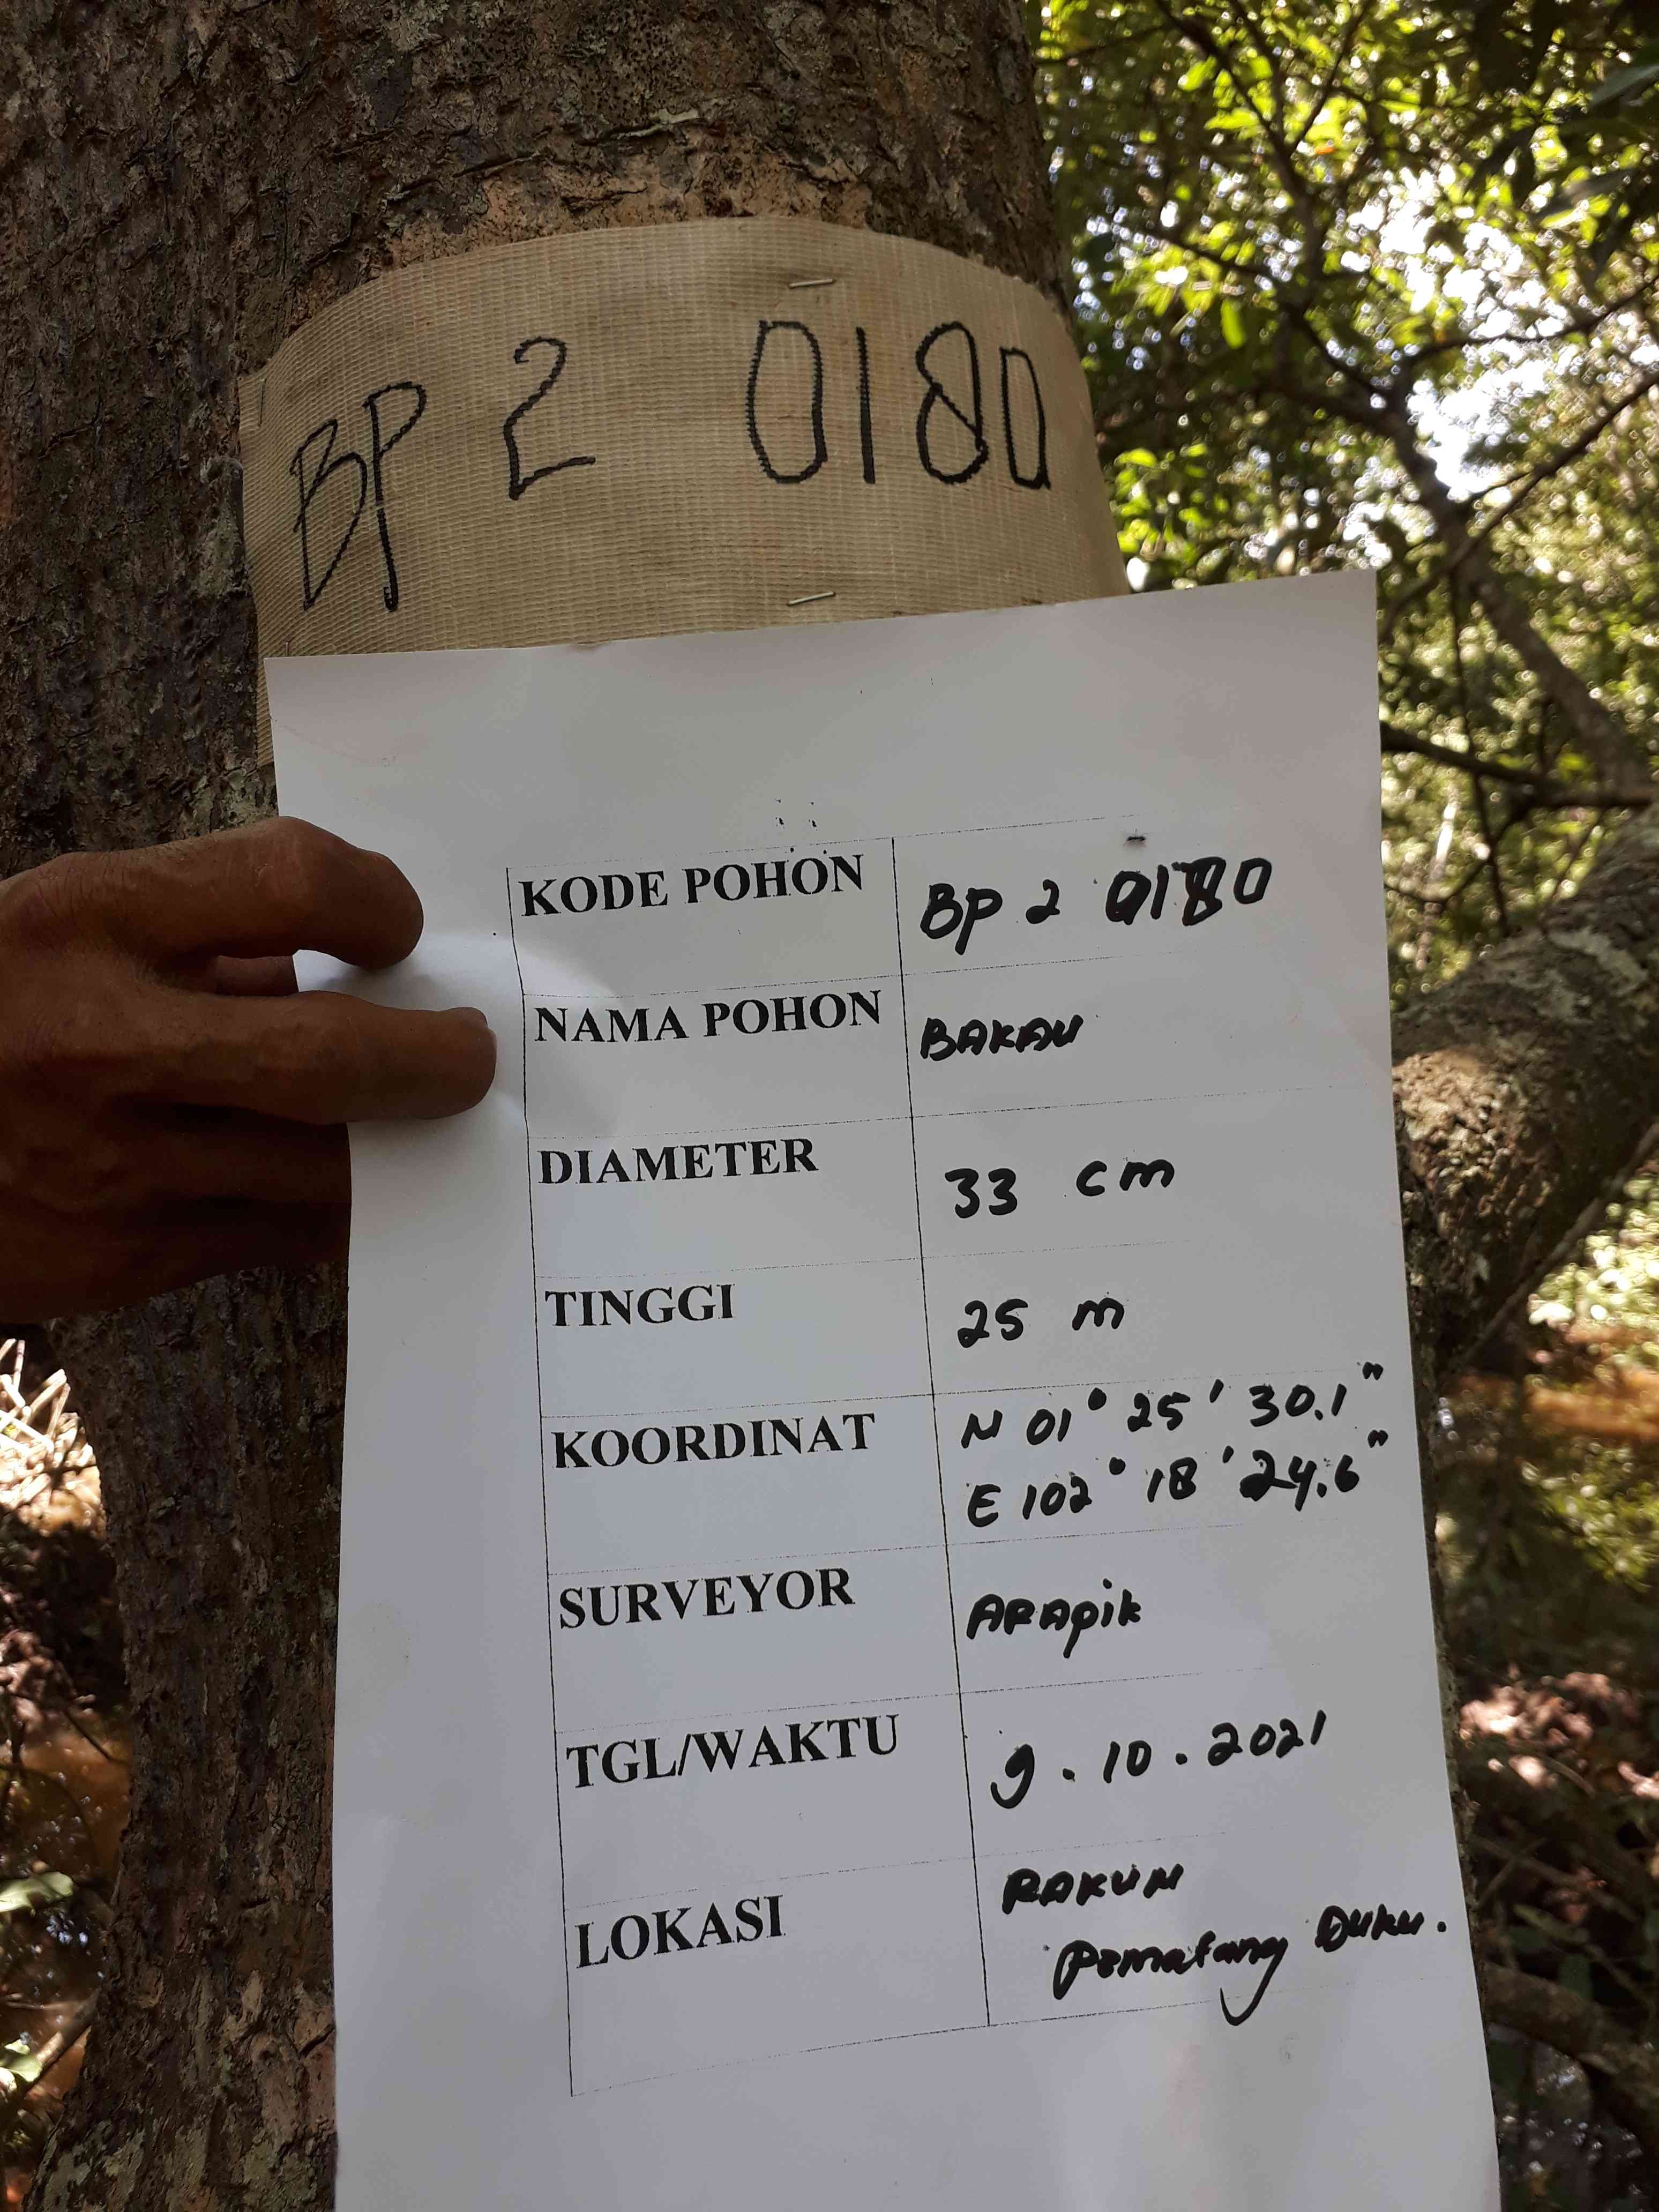 BP 2 0180
KODE POHON BP 2 0180
NAMA POHON BAKAU
DIAMETER 33 cm
TINGGI 25 m
KOORDINAT N 01° 25' 30.1"
E 102° 18' 24.6"
SURVEYOR ARAPik
TGL/WAKTU 9.10.2021
LOKASI RAKUN
Pematang Duku.